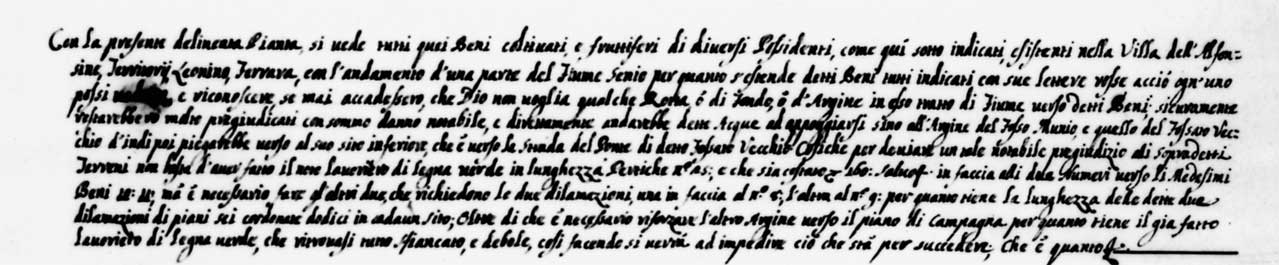 Con la presente delineata Pianta, si vede tutti quei Beni coltivati, e fruttiferi di diversi Possidenti, come quì sotto indicati, esistenti nella Villa dell'Alfon=
sine, Territorij Leonino, Ferrara, con l'andamento d'una parte del Fiume Senio per quanto s'estende detti Beni tutti indicati con sue lettere rosse acciò ogn'uno
possi e riconoscere, se mai accadessero, che Dio non voglia qualche Rotta, ó di fondo, ó d'Argine in esso tratto di Fiume verso detti Beni, sicuramente
restarebbero molto pregiudicati con sommo danno notabile, e direttamente andarebbe dette Acque ad appoggiarsi sino all'Argine del Fosso Munio, e quello del Fossato Vec=
chio d'indi poi piegarebbe verso al suo sito inferiore, che è verso la Strada del Ponte di detto Fossato Vecchio Cosiche per deviare un tale notabile pregiudizio alli sopradetti
Terreni non basta d'aver fatto il novo Lavoriero di Legna verde in lunghezza Pertiche nº. 25; e che sia costato in faccia alli due numeri verso li Medesimi
Beni mà è necessario, fare d'altri due, che richiedono le due dilamazioni, una in faccia al nº. 5; l'altra al nº. 9; per quanto tiene la lunghezza delle dette due
dilamazioni di piani sei cordonate dodici in cadaun sito; Oltre di che è necessario riforzare l'altro Argine verso il piano di Campagna per quanto tiene il già fatto
Lavoriero di Legna verde, che ritrovasi tutto sfiancato, e debole, così facendo si verrà ad impedire ciò che stà per succedere; Che è quanto